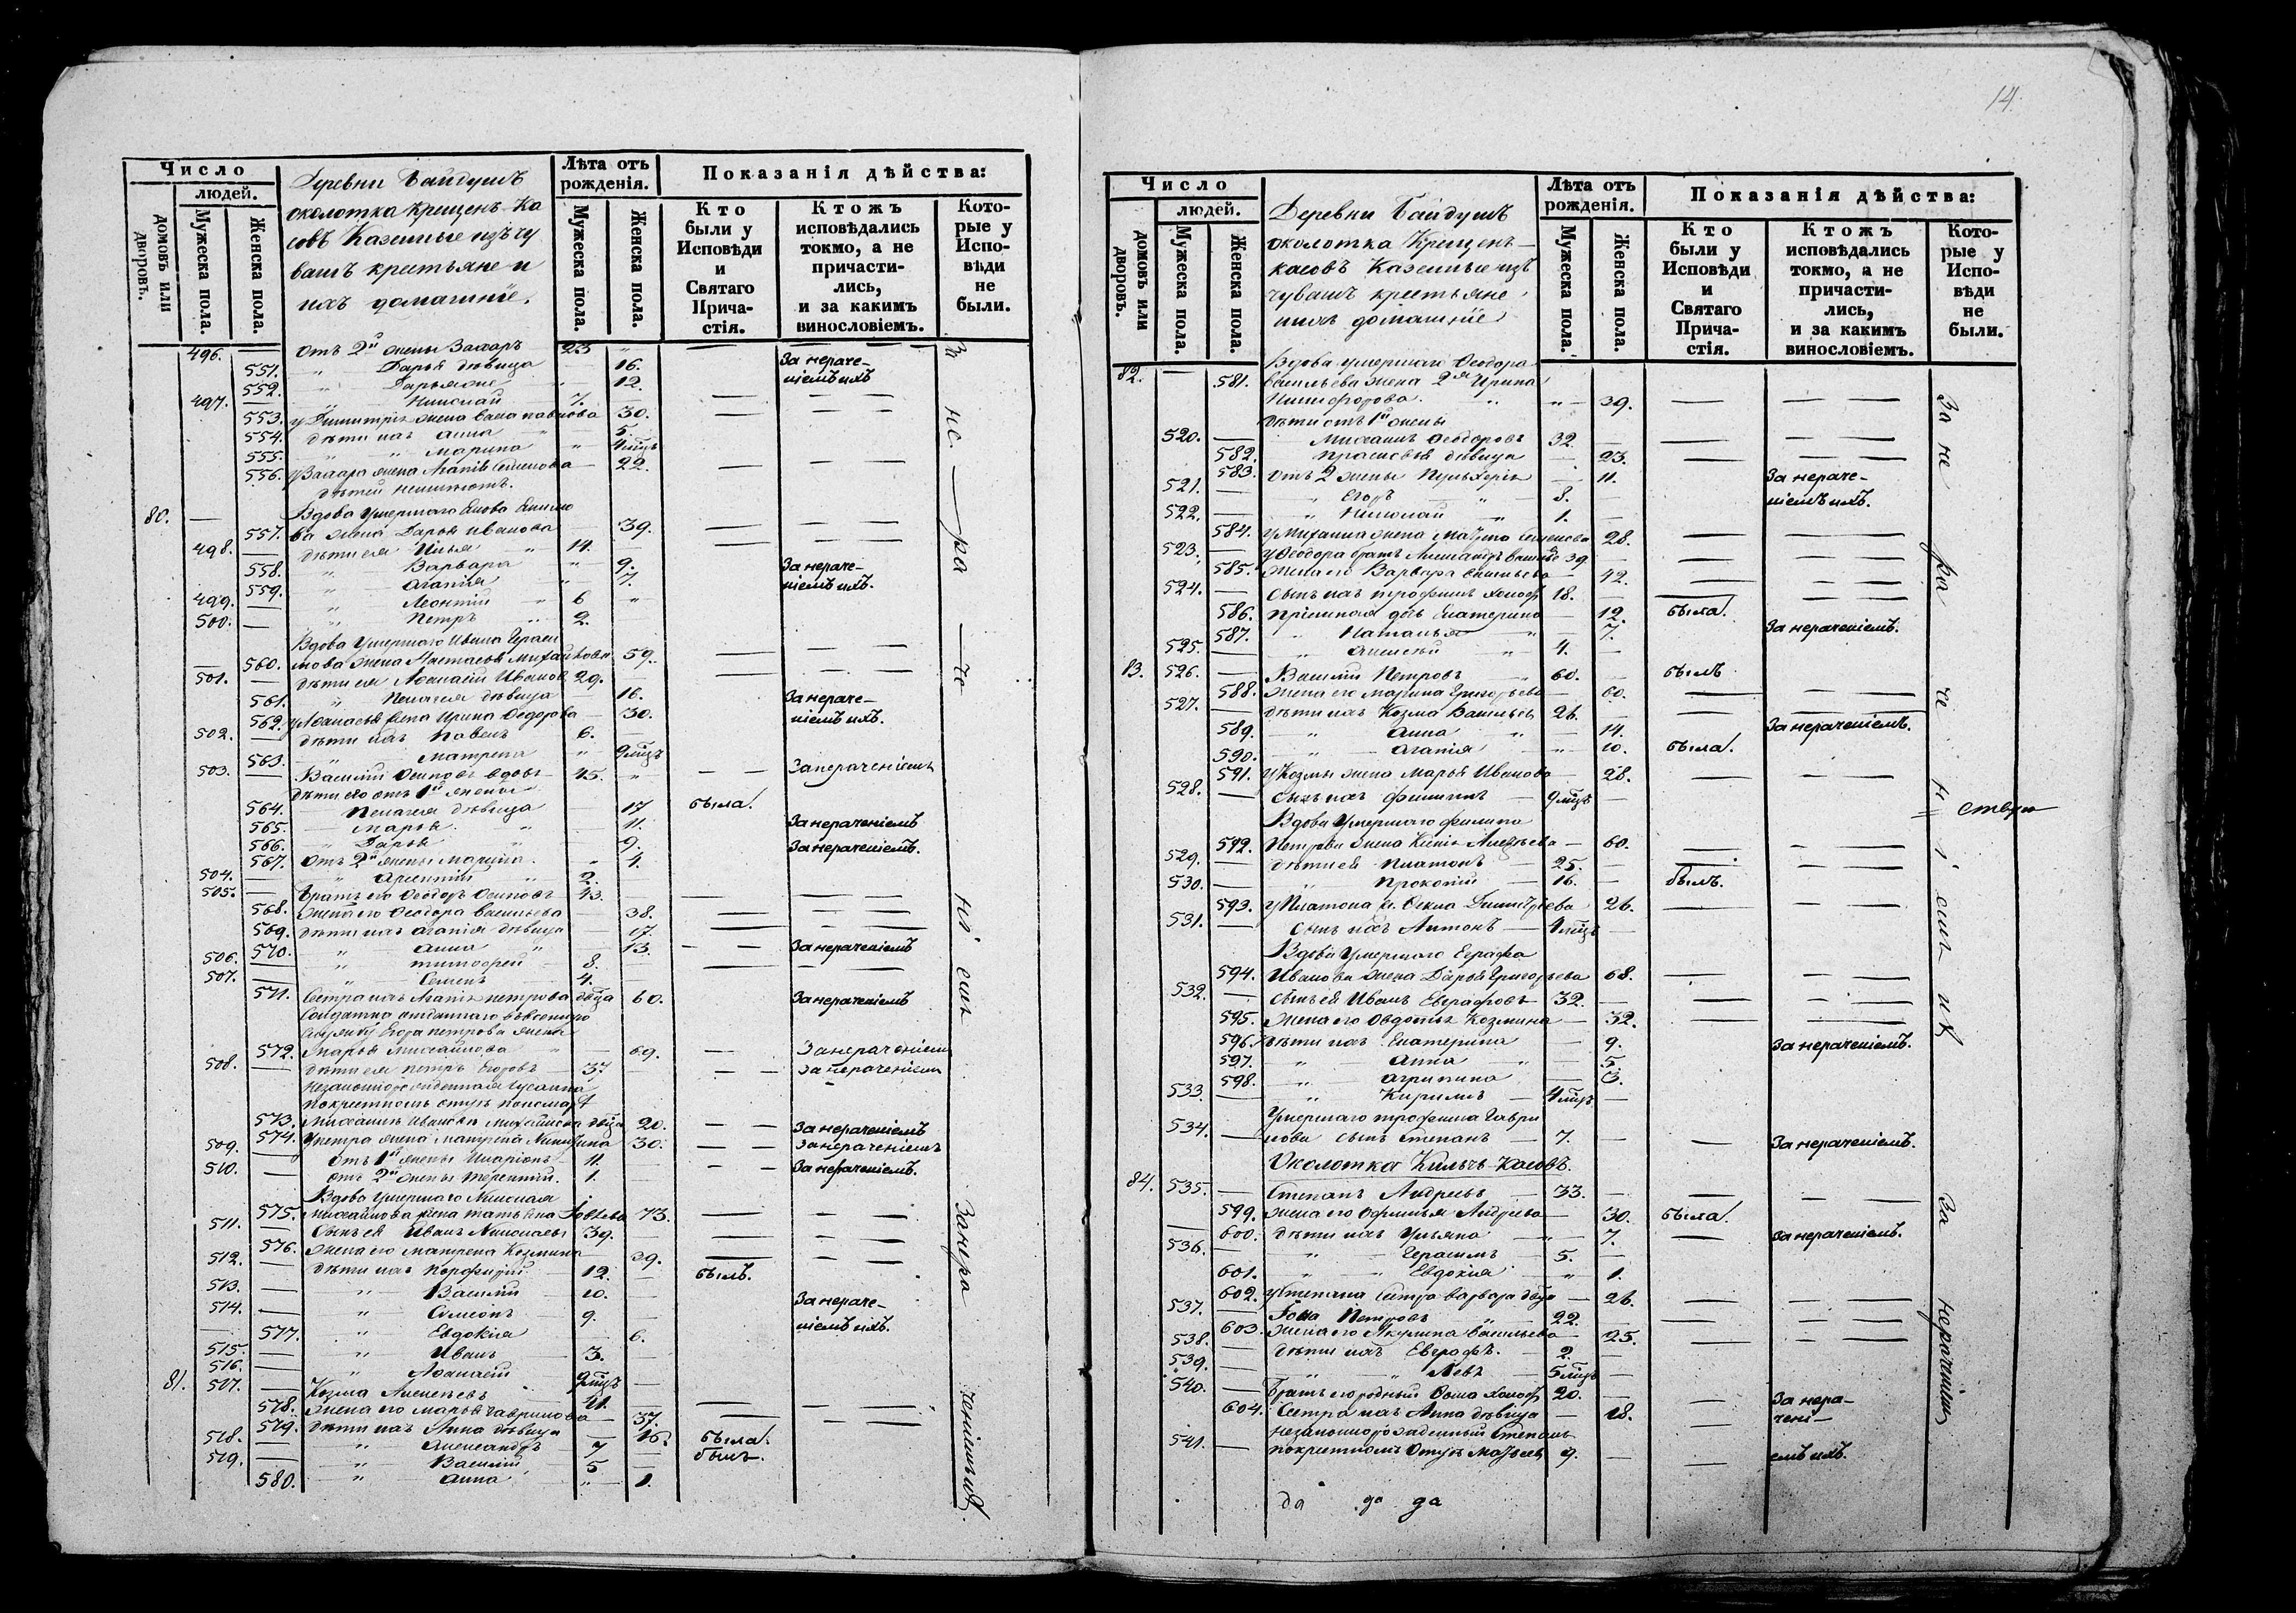 Число
людей.
домовъ или дворовъ.
Мужеска пола.
Женска пола.
Деревни Байдушъ
околотка Крещенъ Ка
совъ Казенные изъ чу
вашъ крестьяне и
ихъ домашніе.
Лѣта отъ рожденія.
Мужеска пола.
Женска пола.
Показанія дѣйства:
Кто были у Исповѣди и Святаго Прича-стія.
Ктожъ исповѣдались токмо, а не причасти-лись, и за какимъ винословіемъ.
Кото-рые у Испо-вѣди не были.
496. Отъ 2й жены Захаръ 23
551. Дарья дѣвица 16. За нераче-
552. 12. ніемъ ихъ
497. Николай 7.
553. у Димитрія жена 30.
554. дѣти ихъ Анна 5.
555. Марина
556. у Захара жена Агапія Семенова 22.
дѣтей неимѣютъ.
80. Вдова Умершаго
557. ва жена Дарья Иванова 39.
498. дѣти ея Илья 14.
558. Варвара 9. За нераче-
559. Агапія 7. ніемъ ихъ.
499. Леонтій 6
500. Петръ 2.
Вдова Умершаго Ивана Гераси
560. мова жена Настасья Михайлова 59.
501. дѣти ея Афанасій Иванов 29.
561. Пелагея дѣвица 16. За нераче-
562. у Афанасья жена Ирина Федорова 30. ніемъ ихъ.
502. дѣти ихъ Павелъ 6.
563. Матрена 9 мцъ
503. Василій Осиповъ вдовъ 45. За нераченіемъ
дѣти его отъ 1й жены
564. Пелагея дѣвица 17 была.
565. Марья 11. За нераченіемъ
566. Дарья 9. За нераченіемъ.
567. Отъ 2й жены Марина 4.
504. Арсентій 2.
505. братъ его Феодоръ Осиповъ 43.
568. жена его Феодора Васильева 38.
569. дѣти ихъ Агапія дѣвица 17.
570. Анна 13. За нераченіемъ
506. Тимофей 8.
507. Семенъ 4.
571. Сестра ихъ Агапія Петрова двца 60. За нераченіемъ
Солдатка отданнаго въ военную
службу Егора Петрова жена
572. Марья Михайлова 69. За нераченіем
508. дѣти ея Петръ Егоровъ 37. За нераченіем
незаконнорожденная
573. Михайлова двца 20. За нераченіемъ
574. У Петра жена Матрена Никитина 30. За нераченіемъ
509. Отъ 1й жены Иларіонъ 11. За нераченіемъ.
510. отъ 2й жены Терентій. 1.
Вдова Умершаго Николая
575. Михайлова жена Татьяна 73.
511. Сынъ ея Иванъ Николаевъ 39.
576. жена его Матрена Козмина 39.
512. дѣти ихъ Порфирій 12. былъ.
513. Василій 10.
514. Симеонъ 9. За нераче-
577. Евдокія 6. ніемъ ихъ.
515. Иванъ 3.
516. Афанасій 9 мцъ
81. 517. Козма Алексѣевъ 41.
578. жена его Марья Гаврилова 37.
579. дѣти ихъ Анна дѣвица 16. была.
518. Александръ 7 былъ.
519. Василій 5
580. Анна 1.
За не — ра — че ні емъ За нера ченіемъ ихъ.
14.
Число
людей.
домовъ или дворовъ.
Мужеска пола.
Женска пола.
Деревни Байдушъ
околотка Крещенъ
касовъ Казенные изъ
чувашъ крестьяне
ихъ домашніе
Лѣта отъ рожденія.
Мужеска пола.
Женска пола.
Показанія дѣйства:
Кто были у Исповѣди и Святаго Прича-стія.
Ктожъ исповѣдались токмо, а не причасти-лись, и за какимъ винословіемъ.
Кото-рые у Испо-вѣди не были.
82. Вдова умершаго Феодора
581. Васильева жена 2я Ирина
Никифорова. 39.
дѣти отъ 1й жены
520. Михаилъ Феодоровъ 32.
582. Прасковья дѣвица 23.
583. Отъ 2 жены Пульхерія 11. За нераче-
521. Егоръ 8. ніемъ ихъ.
522. Николай 1.
584. у Михаила жена Семенова 28.
523. у Феодора братъ Александръ 39
585. жена его Варвара Савельева 42.
524. сынъ ихъ Трофимъ 18.
586. Екатерина 12. была.
587. Наталья 7. За нераченіемъ.
525. Алексѣй 4.
83. 526. Василій Петровъ 60. былъ
588. жена его Марина Григорьева 60.
527. дѣти ихъ Козма Васильевъ 26.
589. Анна 14. За нераченіемъ.
590. Агапія 10. была.
591. у Козмы жена Марья Иванова 28.
528. сынъ ихъ Филиппъ 9 мцъ
Вдова Умершаго Филипа
592. Петрова жена Ксенія Алексѣева 60.
529. дѣти ея Платонъ 25.
530. Прокопій 16. былъ.
593. у Платона ж. Фекла Димитріева 26.
531. сынъ ихъ Антонъ
Вдова Умершаго Еграфа
594. Иванова жена Дарья Григорьева 68.
532. сынъ ея Иванъ Евграфовъ 32.
595. жена его Овдотья Козмина 32.
596. дѣти ихъ Екатерина 9. За нераченіемъ.
597. Анна 5.
598. Агрипина 3.
533. Кирилъ
Умершаго Трофима Гаври
534. лова сынъ Степанъ 7. За нераченіемъ.
Околотка Кильчь-касовъ.
84. 535. Степанъ Андреевъ 33.
599. жена его Офимья Андреева 30. была.
600. дѣти ихъ Ульяна 7. За нераченіемъ.
536. Герасимъ 5.
601. Евдокія 1.
602. у Степана сестра Варвара двца 26.
537. Петровъ 22.
603. жена его Акулина Васильева 25.
538. дѣти ихъ Евграфъ. 2.
539. Левъ 5 мцъ
540. братъ его родный Фома 20. За нера-
604. Сестра ихъ Анна дѣвица 18. чені-
незаконнорожденный Степанъ
541. 9. емъ ихъ.
да да да
За не ра че н і емъ ихъ За нераченіемъ